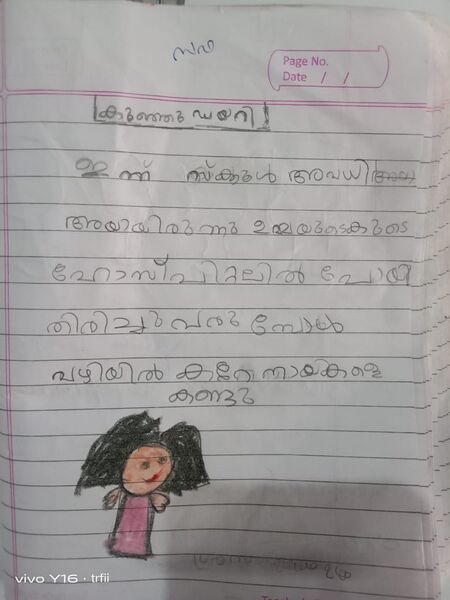 സഫ
Page No.
Date / /
കുഞ്ഞു ഡയറി
ഇന്ന് സ്ക്കൂൾ അവധി
അയായിരുന്നു ഉമ്മയുടെകൂടെ
ഹോസ്പിറ്റലിൽ പോയി
തിരിച്ചു വരുമ്പോൾ
വഴിയിൽ കുറേ നായകളെ
കണ്ടു
vivo Y16 · trfii